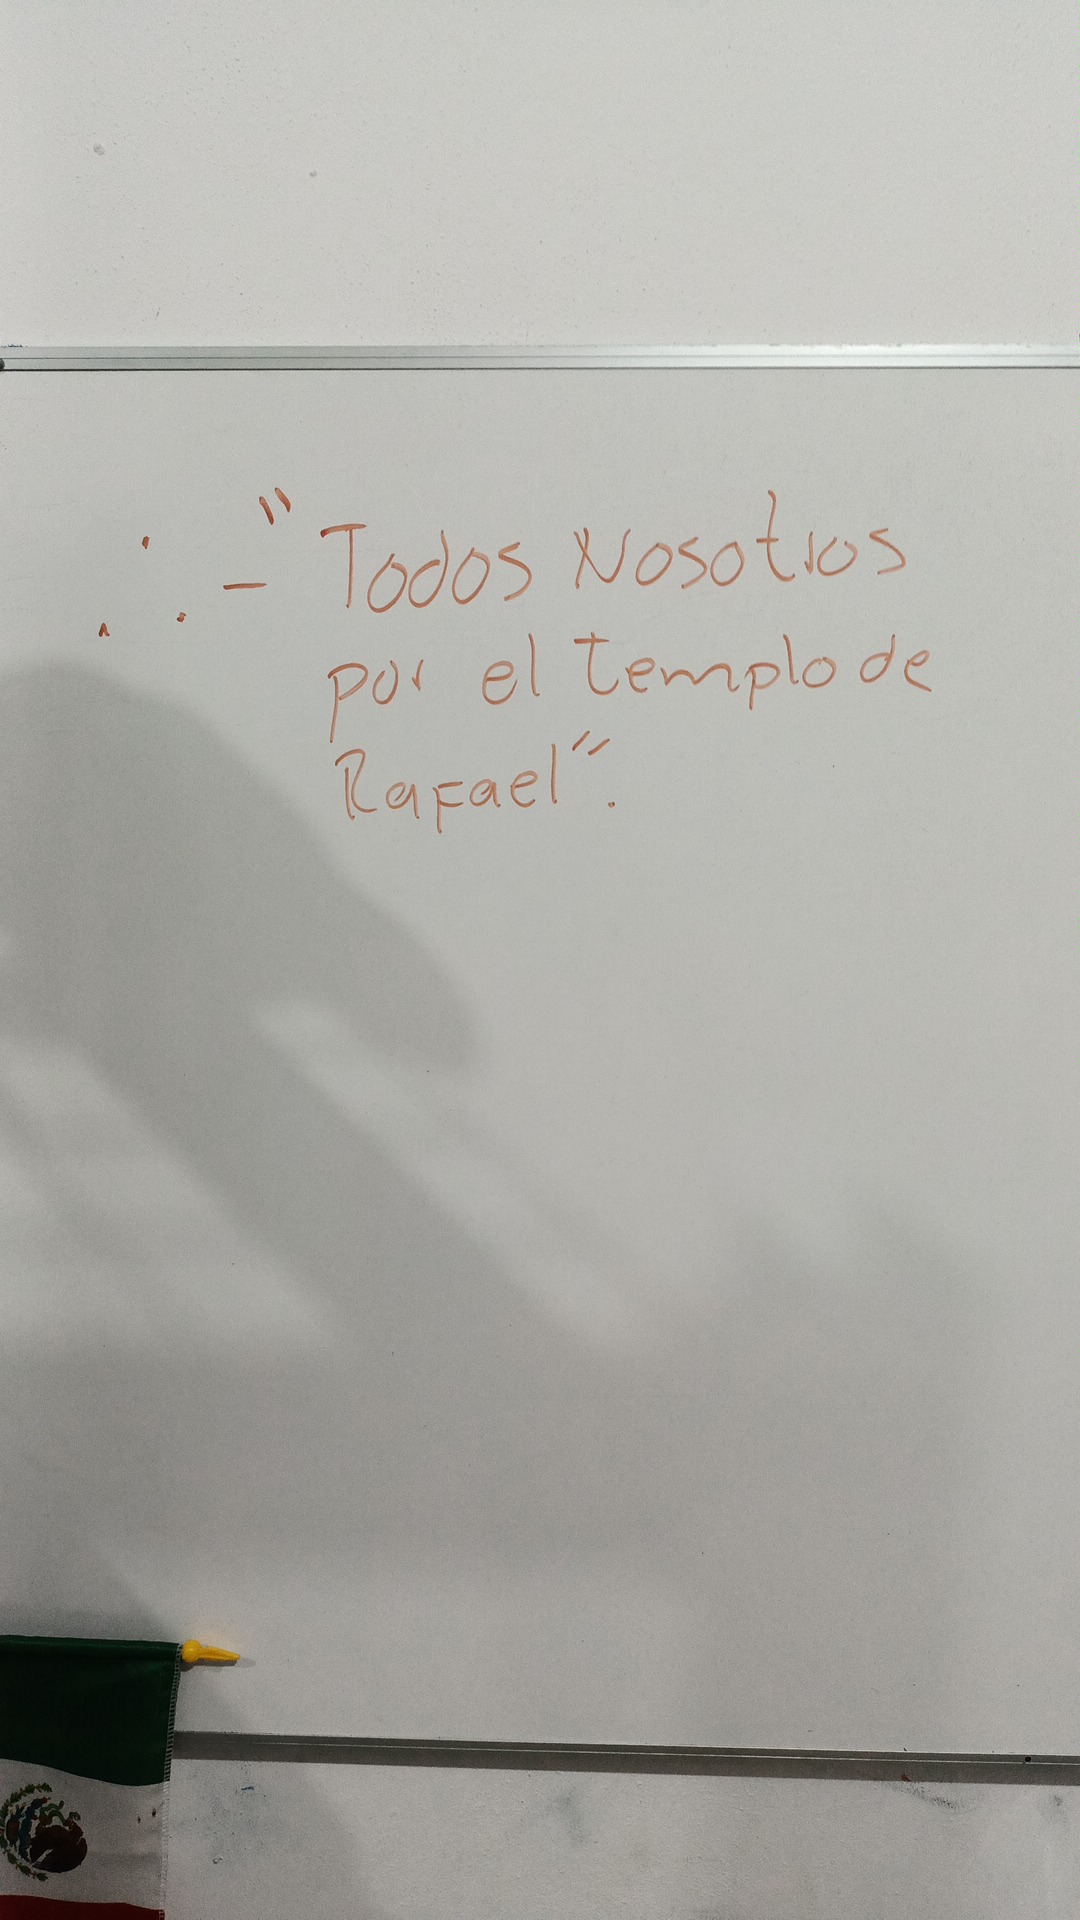 ∴ - "Todos Nosotros
por el templo de
Rafael".